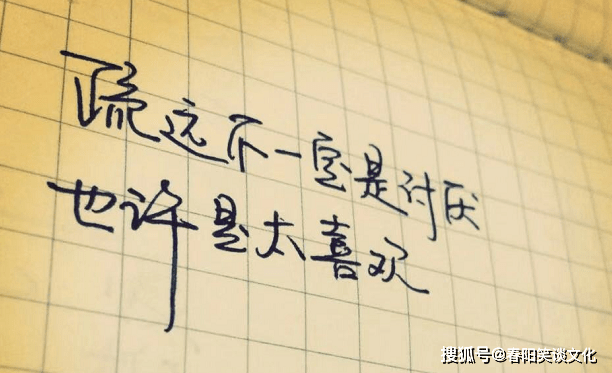 疏远不一定是讨厌
也许是太喜欢
搜狐号@春阳笑谈文化